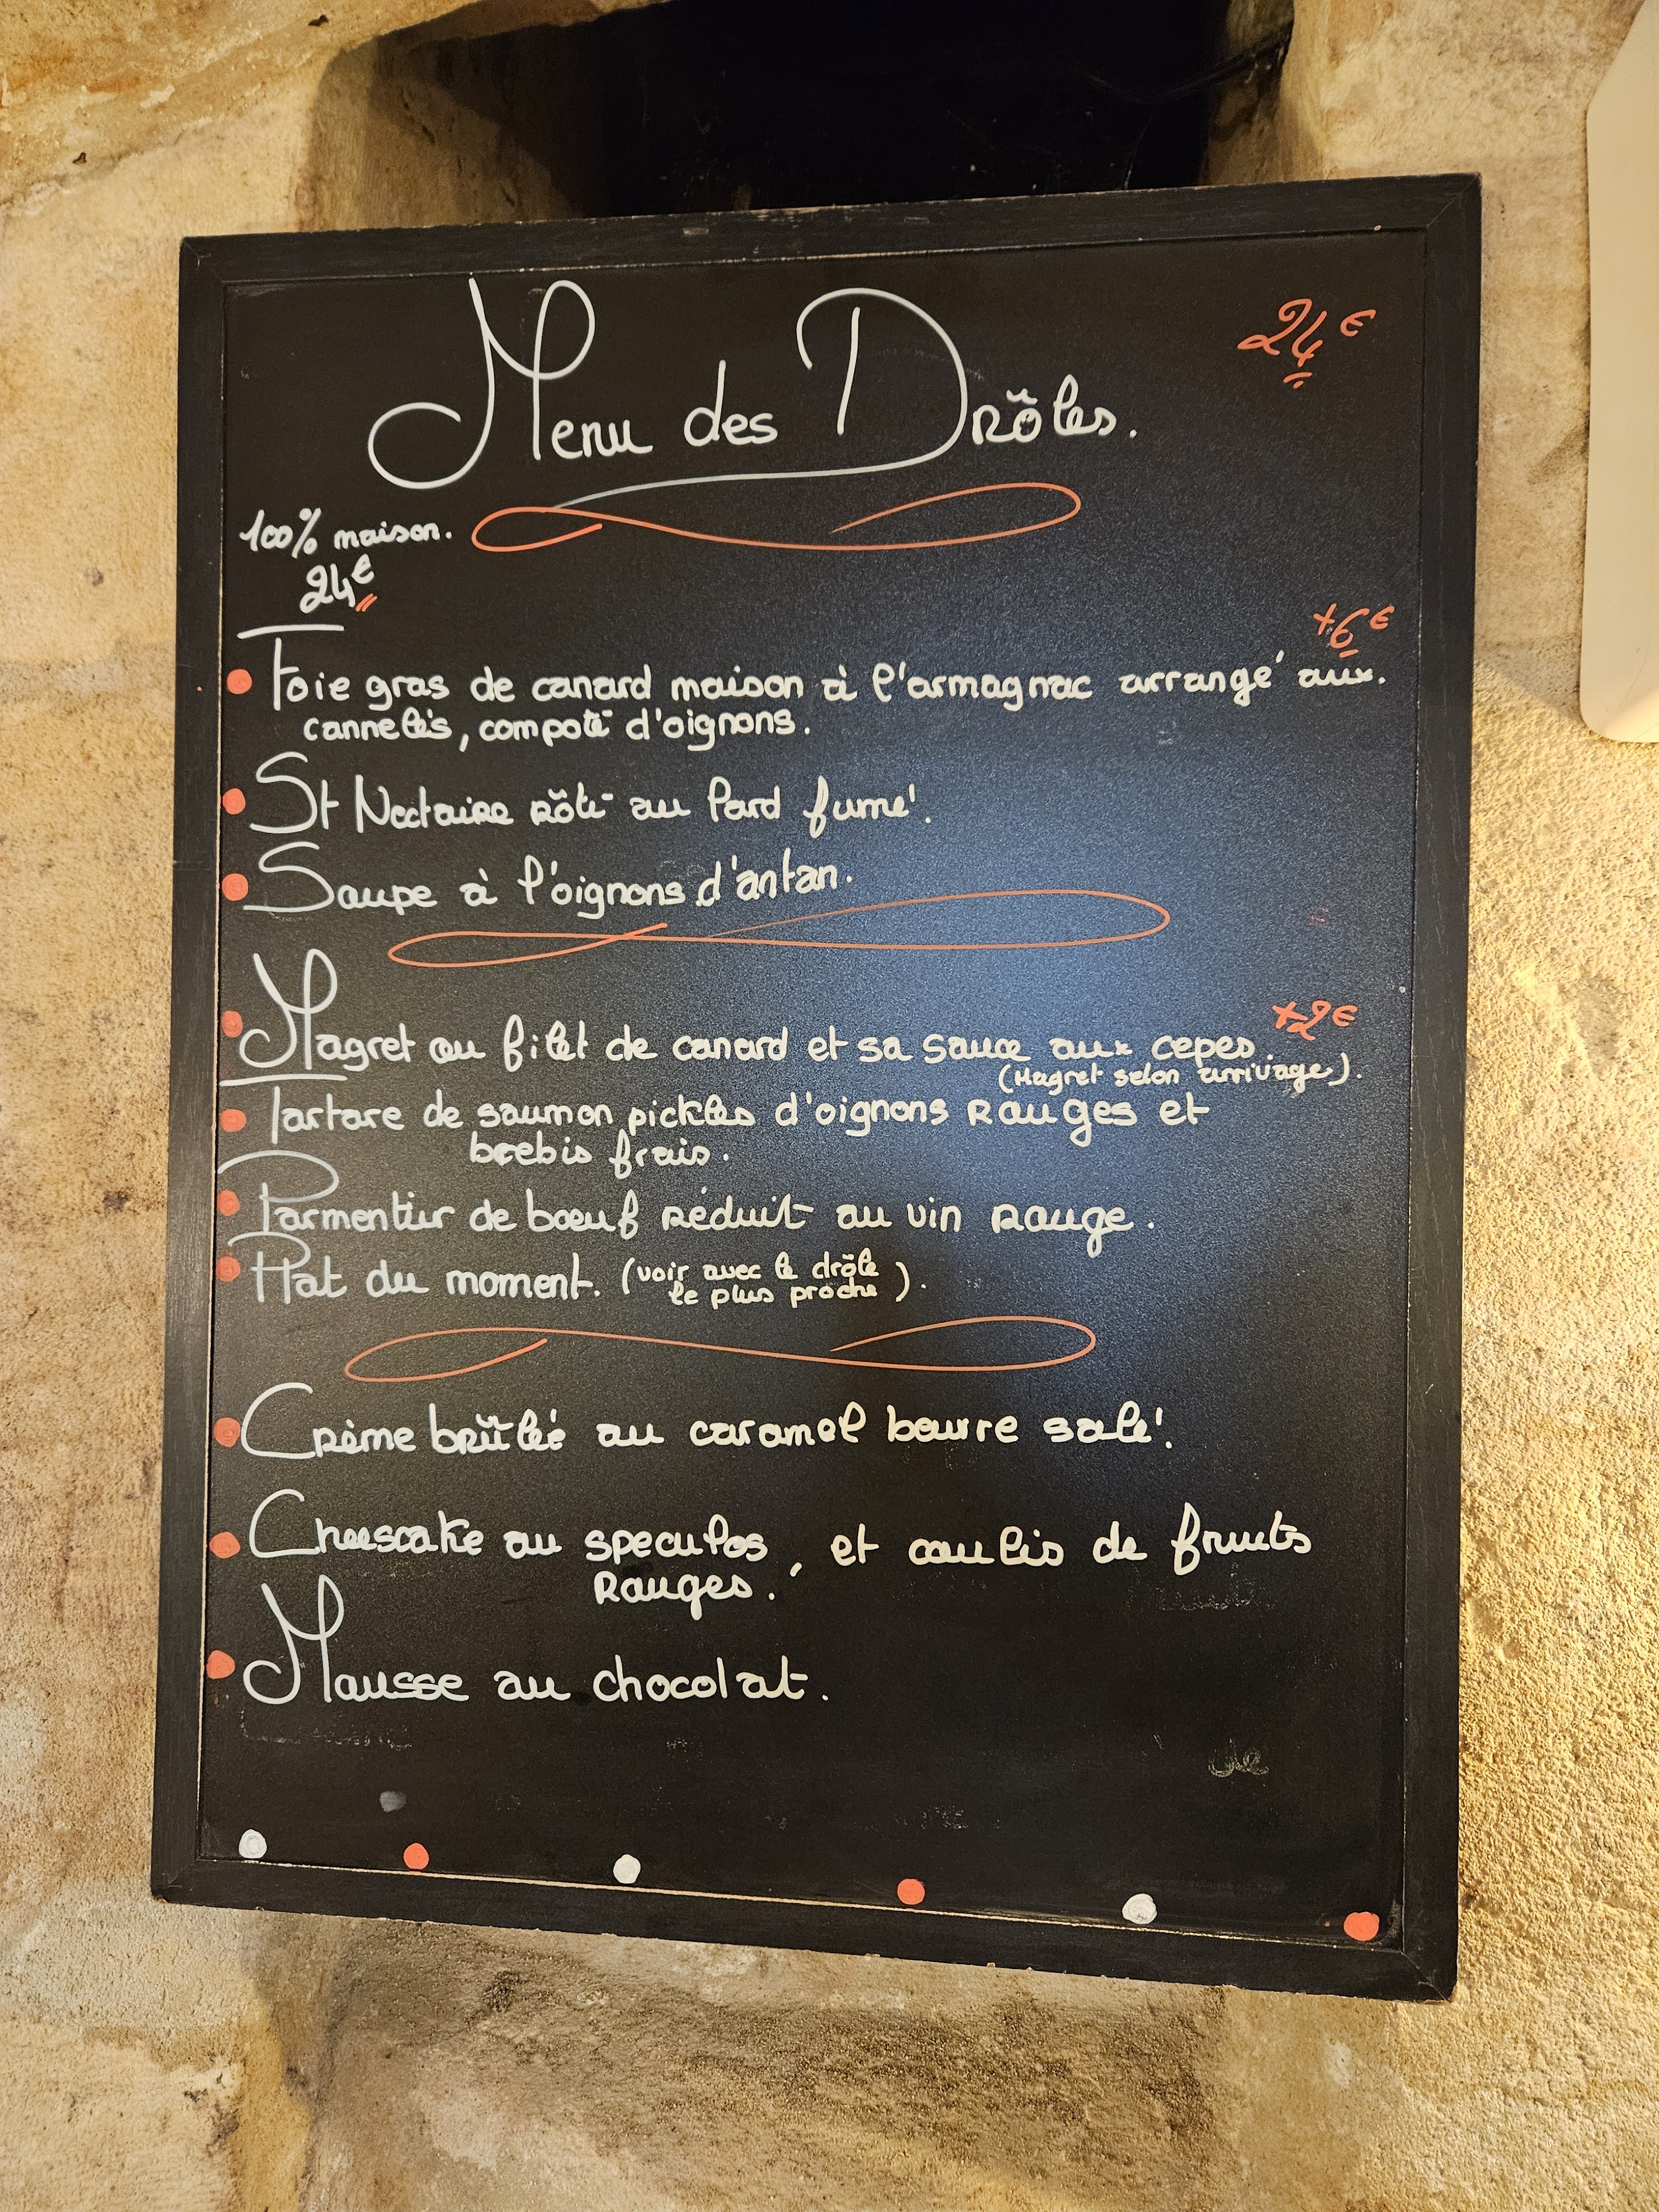 Menu des Drôles.
24€
100% maison.
24€
+6€
Foie gras de canard maison à l'armagnac arrangé aux.
cannelés, compoté d'oignons.
St Nectaire rôti au lard fumé.
Soupe à l'oignons d'antan.
+2€
Magret ou filet de canard et sa sauce aux cepes.
(Magret selon arrivage).
Tartare de saumon, pickles d'oignons Rouges et
brebis frais.
Parmentier de bœuf réduit au vin rouge.
Plat du moment. (voir avec le drôle
le plus proche).
Crème brûlée au caramel beurre salé.
Cheescake au speculos, et coulis de fruits
Rouges.
Mousse au chocolat.